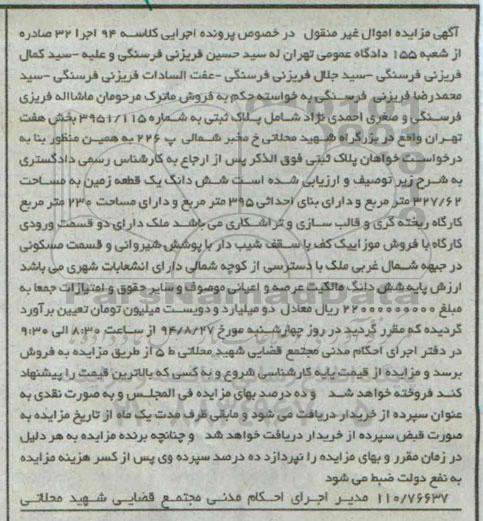 آگهی مزایده اموال غیر منقول در خصوص پرونده اجرایی کلاسه ۹۴ اجرا ۳۲ صادره
از شعبه ۱۵۵ دادگاه عمومی تهران له سید حسین فریزنی فرسنگی و علیه -سید کمال
فریزنی فرسنگی -سید جلال فریزنی فرسنگی -عفت السادات فریزنی فرسنگی -سید
محمدرضا فریزنی فرسنگی به خواسته حکم به فروش ماترک مرحومان ماشااله فریزی
فرسنگی و صغری احمدی نژاد شامل پلاک ثبتی به شماره ۳۹۵۱/۱۱۵ بخش هفت
تهران واقع در بزرگراه شهید محلاتی خ مخبر شمالی پ ۲۲۶ به همین منظور بنا به
درخواست خواهان پلاک ثبتی فوق الذکر پس از ارجاع به کارشناس رسمی دادگستری
به شرح زیر توصیف و ارزیابی شده است شش دانگ یک قطعه زمین به مساحت
۳۲۷/۶۲ متر مربع و دارای بنای احداثی ۳۹۵ متر مربع و دارای مساحت ۲۳۰ متر مربع
کارگاه ریخته گری و قالب سازی و تراشکاری می باشد ملک دارای دو قسمت ورودی
کارگاه با فروش موزاییک کف با سقف شیب دار با پوشش شیروانی و قسمت مسکونی
در جبهه شمال غربی ملک با دسترسی از کوچه شمالی دارای انشعابات شهری می باشد
ارزش پایه شش دانگ مالکیت عرصه و اعیانی موصوف و سایر حقوق و امتیازات جمعا به
مبلغ ۲۲۰۰۰۰۰۰۰۰۰ ریال معادل دو میلیارد و دویست میلیون تومان تعیین برآورد
گردیده که مقرر گردید در روز چهارشنبه مورخ ۹۴/۸/۲۷ از ساعت ۸:۳۰ الی ۹:۳۰
در دفتر اجرای احکام مدنی مجتمع قضایی شهید محلاتی ط ۵ از طریق مزایده به فروش
برسد و مزایده از قیمت پایه کارشناسی شروع و به کسی که بالاترین قیمت را پیشنهاد
کند فروخته خواهد شد و ده درصد بهای مزایده فی المجلس و به صورت نقدی به
عنوان سپرده از خریدار دریافت می شود و مابقی ظرف مدت یک ماه از تاریخ مزایده به
صورت قبض سپرده از خریدار دریافت خواهد شد و چنانچه برنده مزایده به هر دلیل
در زمان مقرر و بهای مزایده را نپردازد ده درصد سپرده وی پس از کسر هزینه مزایده
به نفع دولت ضبط می شود
۱۱۰/۷۶۶۳۷ مدیر اجرای احکام مدنی مجتمع قضایی شهید محلاتی
ParsNamadData